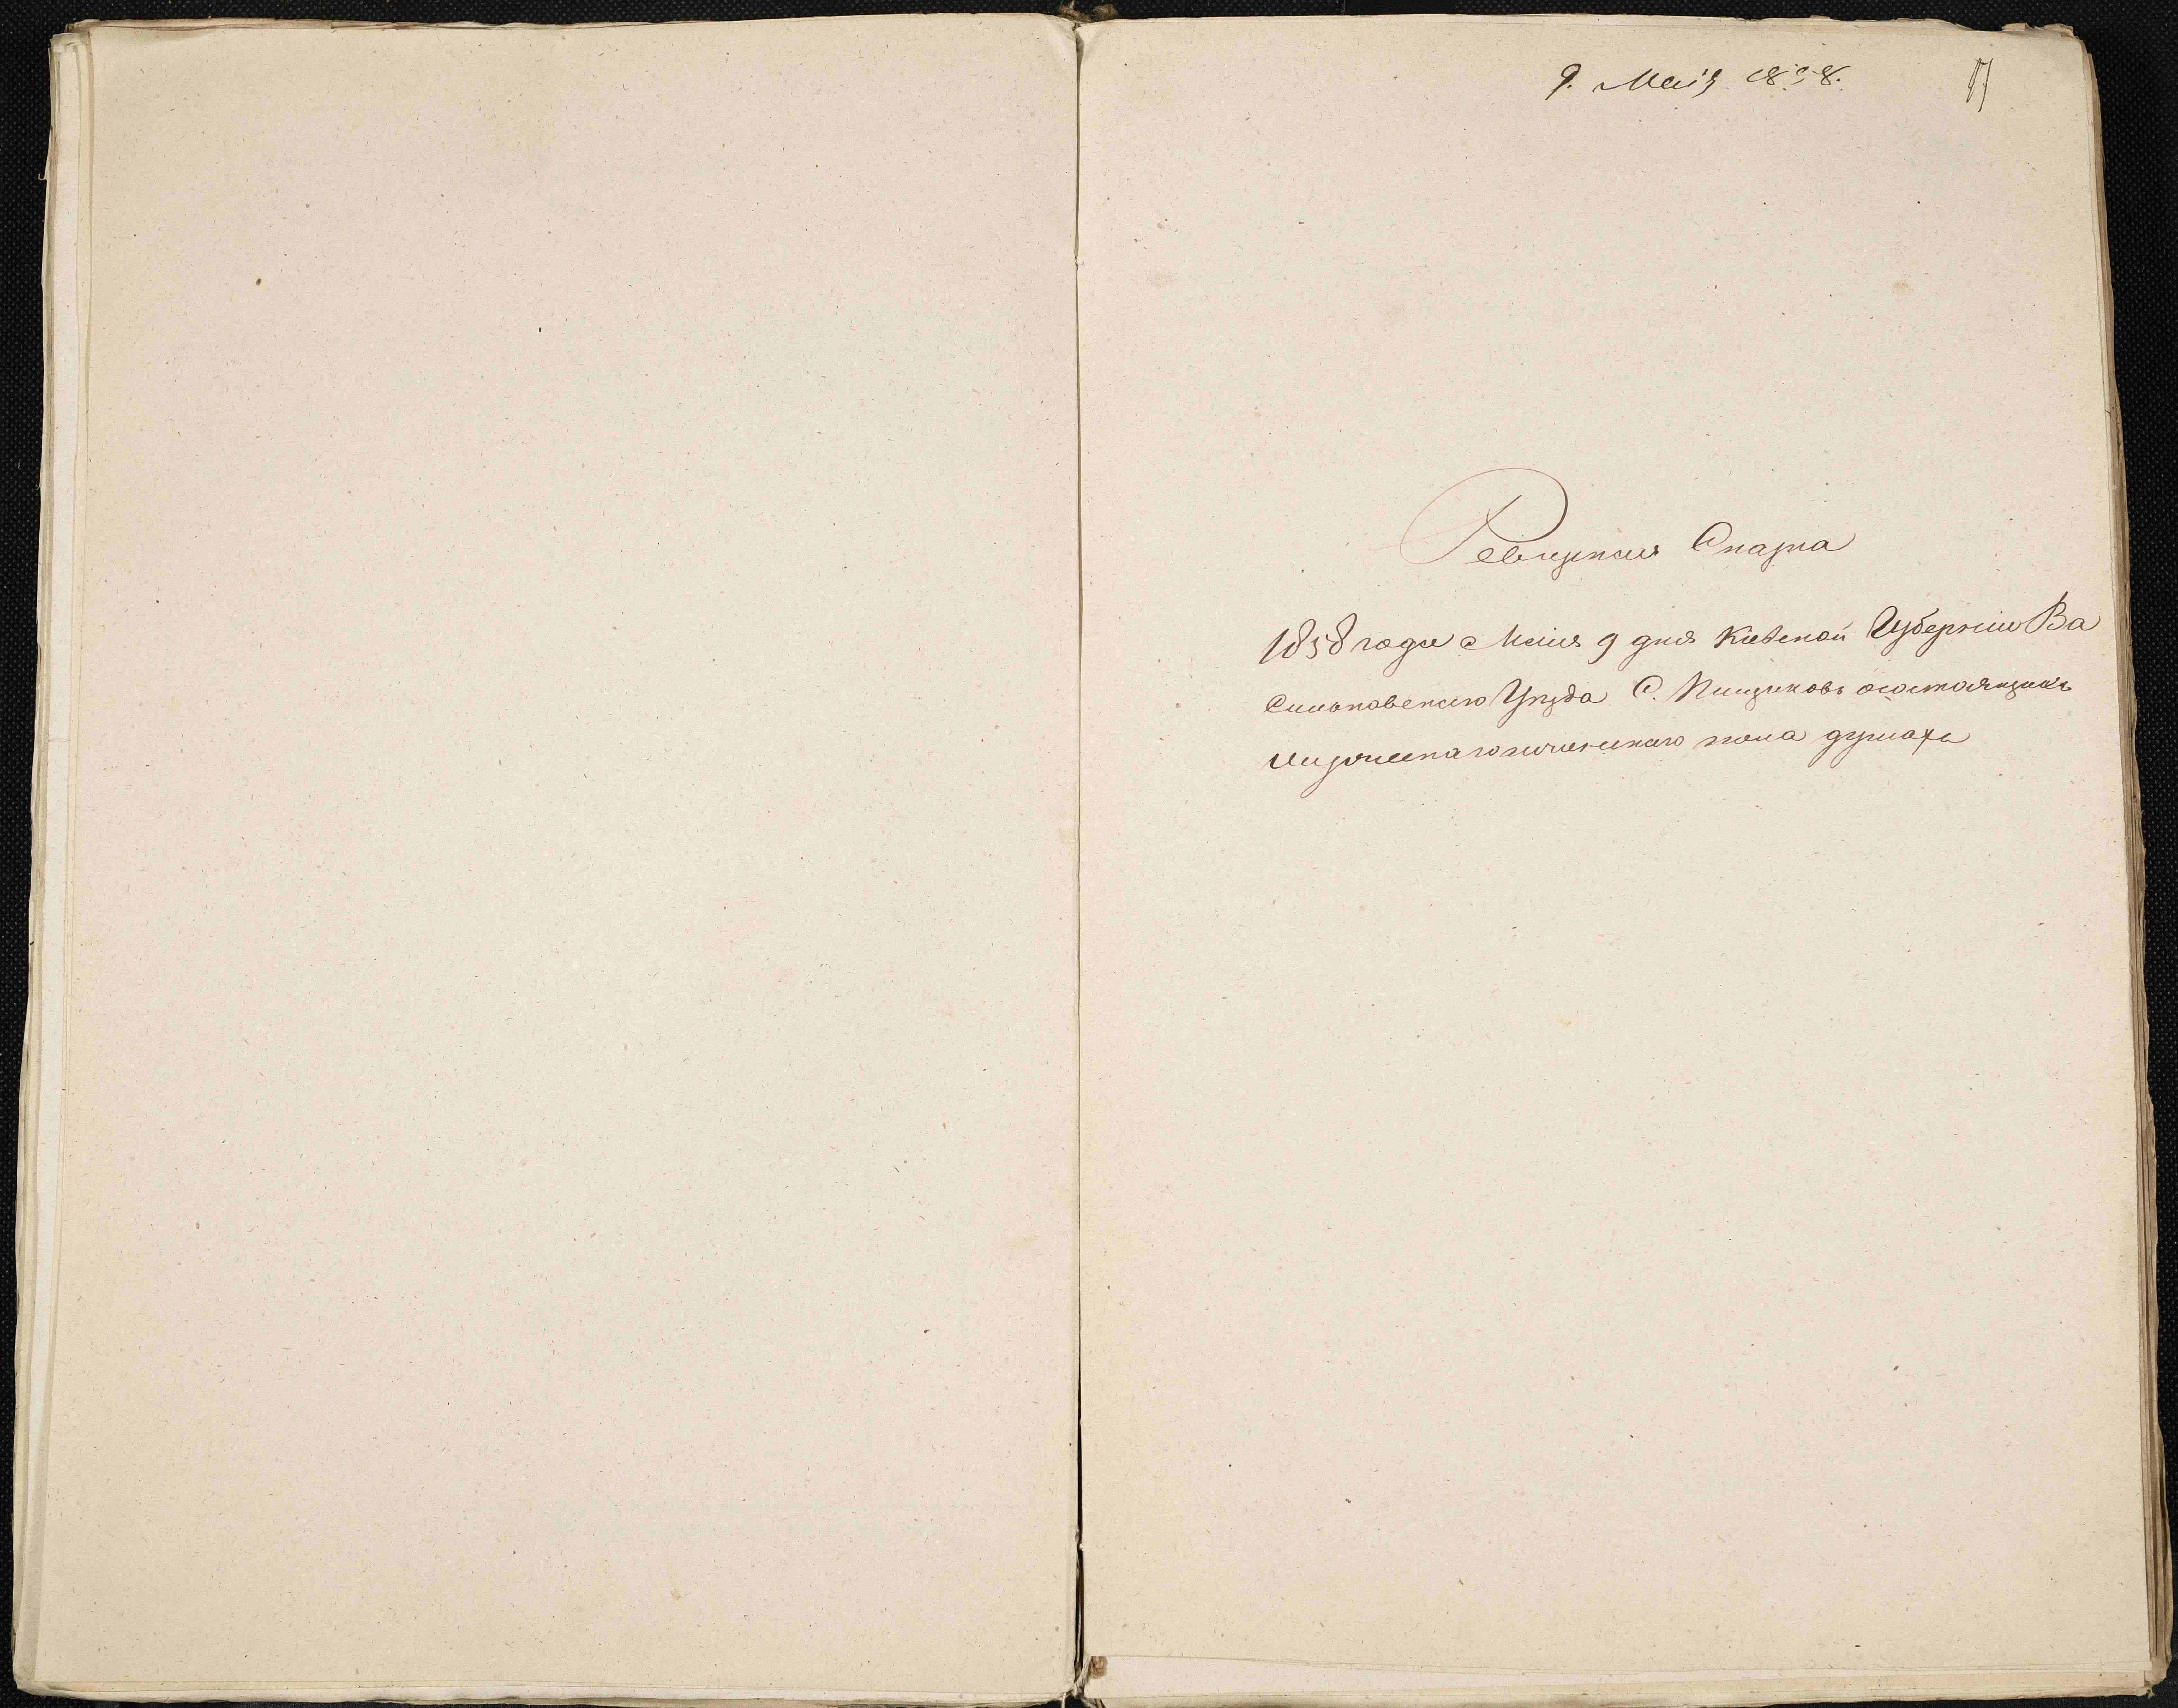 9. Маія 1858.
17
Ревизская Сказка
1858 года Маія 9 дня Кіевской Губерніи Ва
сильковского Уезда С. Пищиковъ осостоящихъ
мужеска го женскаго пола душахъ